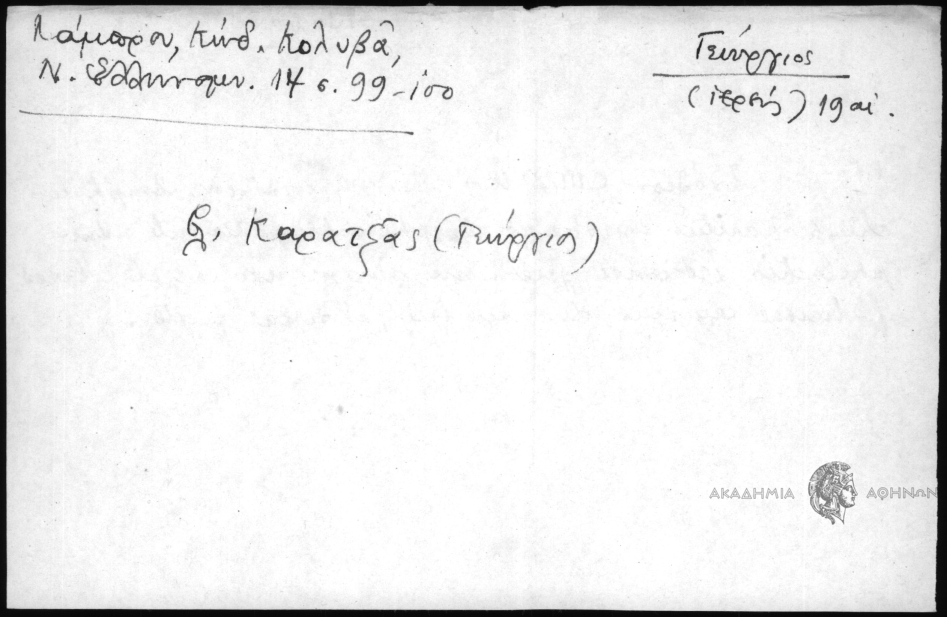 Λάμπρου, Κώδ. Κολυβᾶ,
Ν. Ἑλληνομν. 14 σ. 99-100
Γεώργιος
(ἱερεύς) 19 αἰ.
βλ. Καρατζᾶς (Γεώργιος)
ΑΚΑΔΗΜΙΑ ΑΘΗΝΩΝ